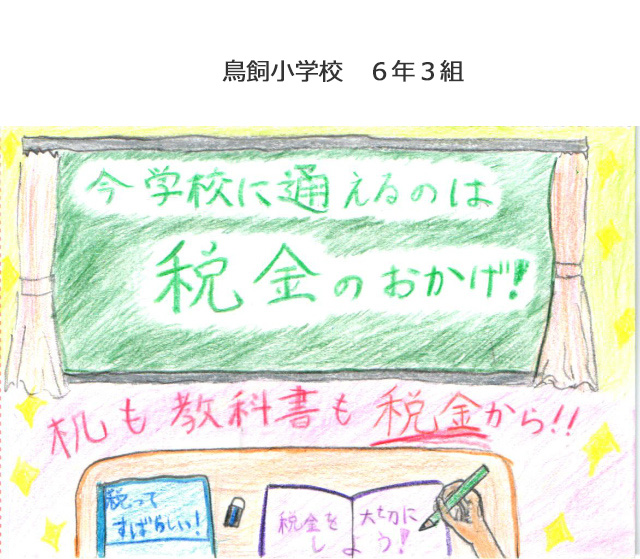 鳥飼小学校　６年３組
今学校に通えるのは
税金のおかげ!
机も教科書も税金から!!
税って
すばらしい!
税金を大切に
しよう!